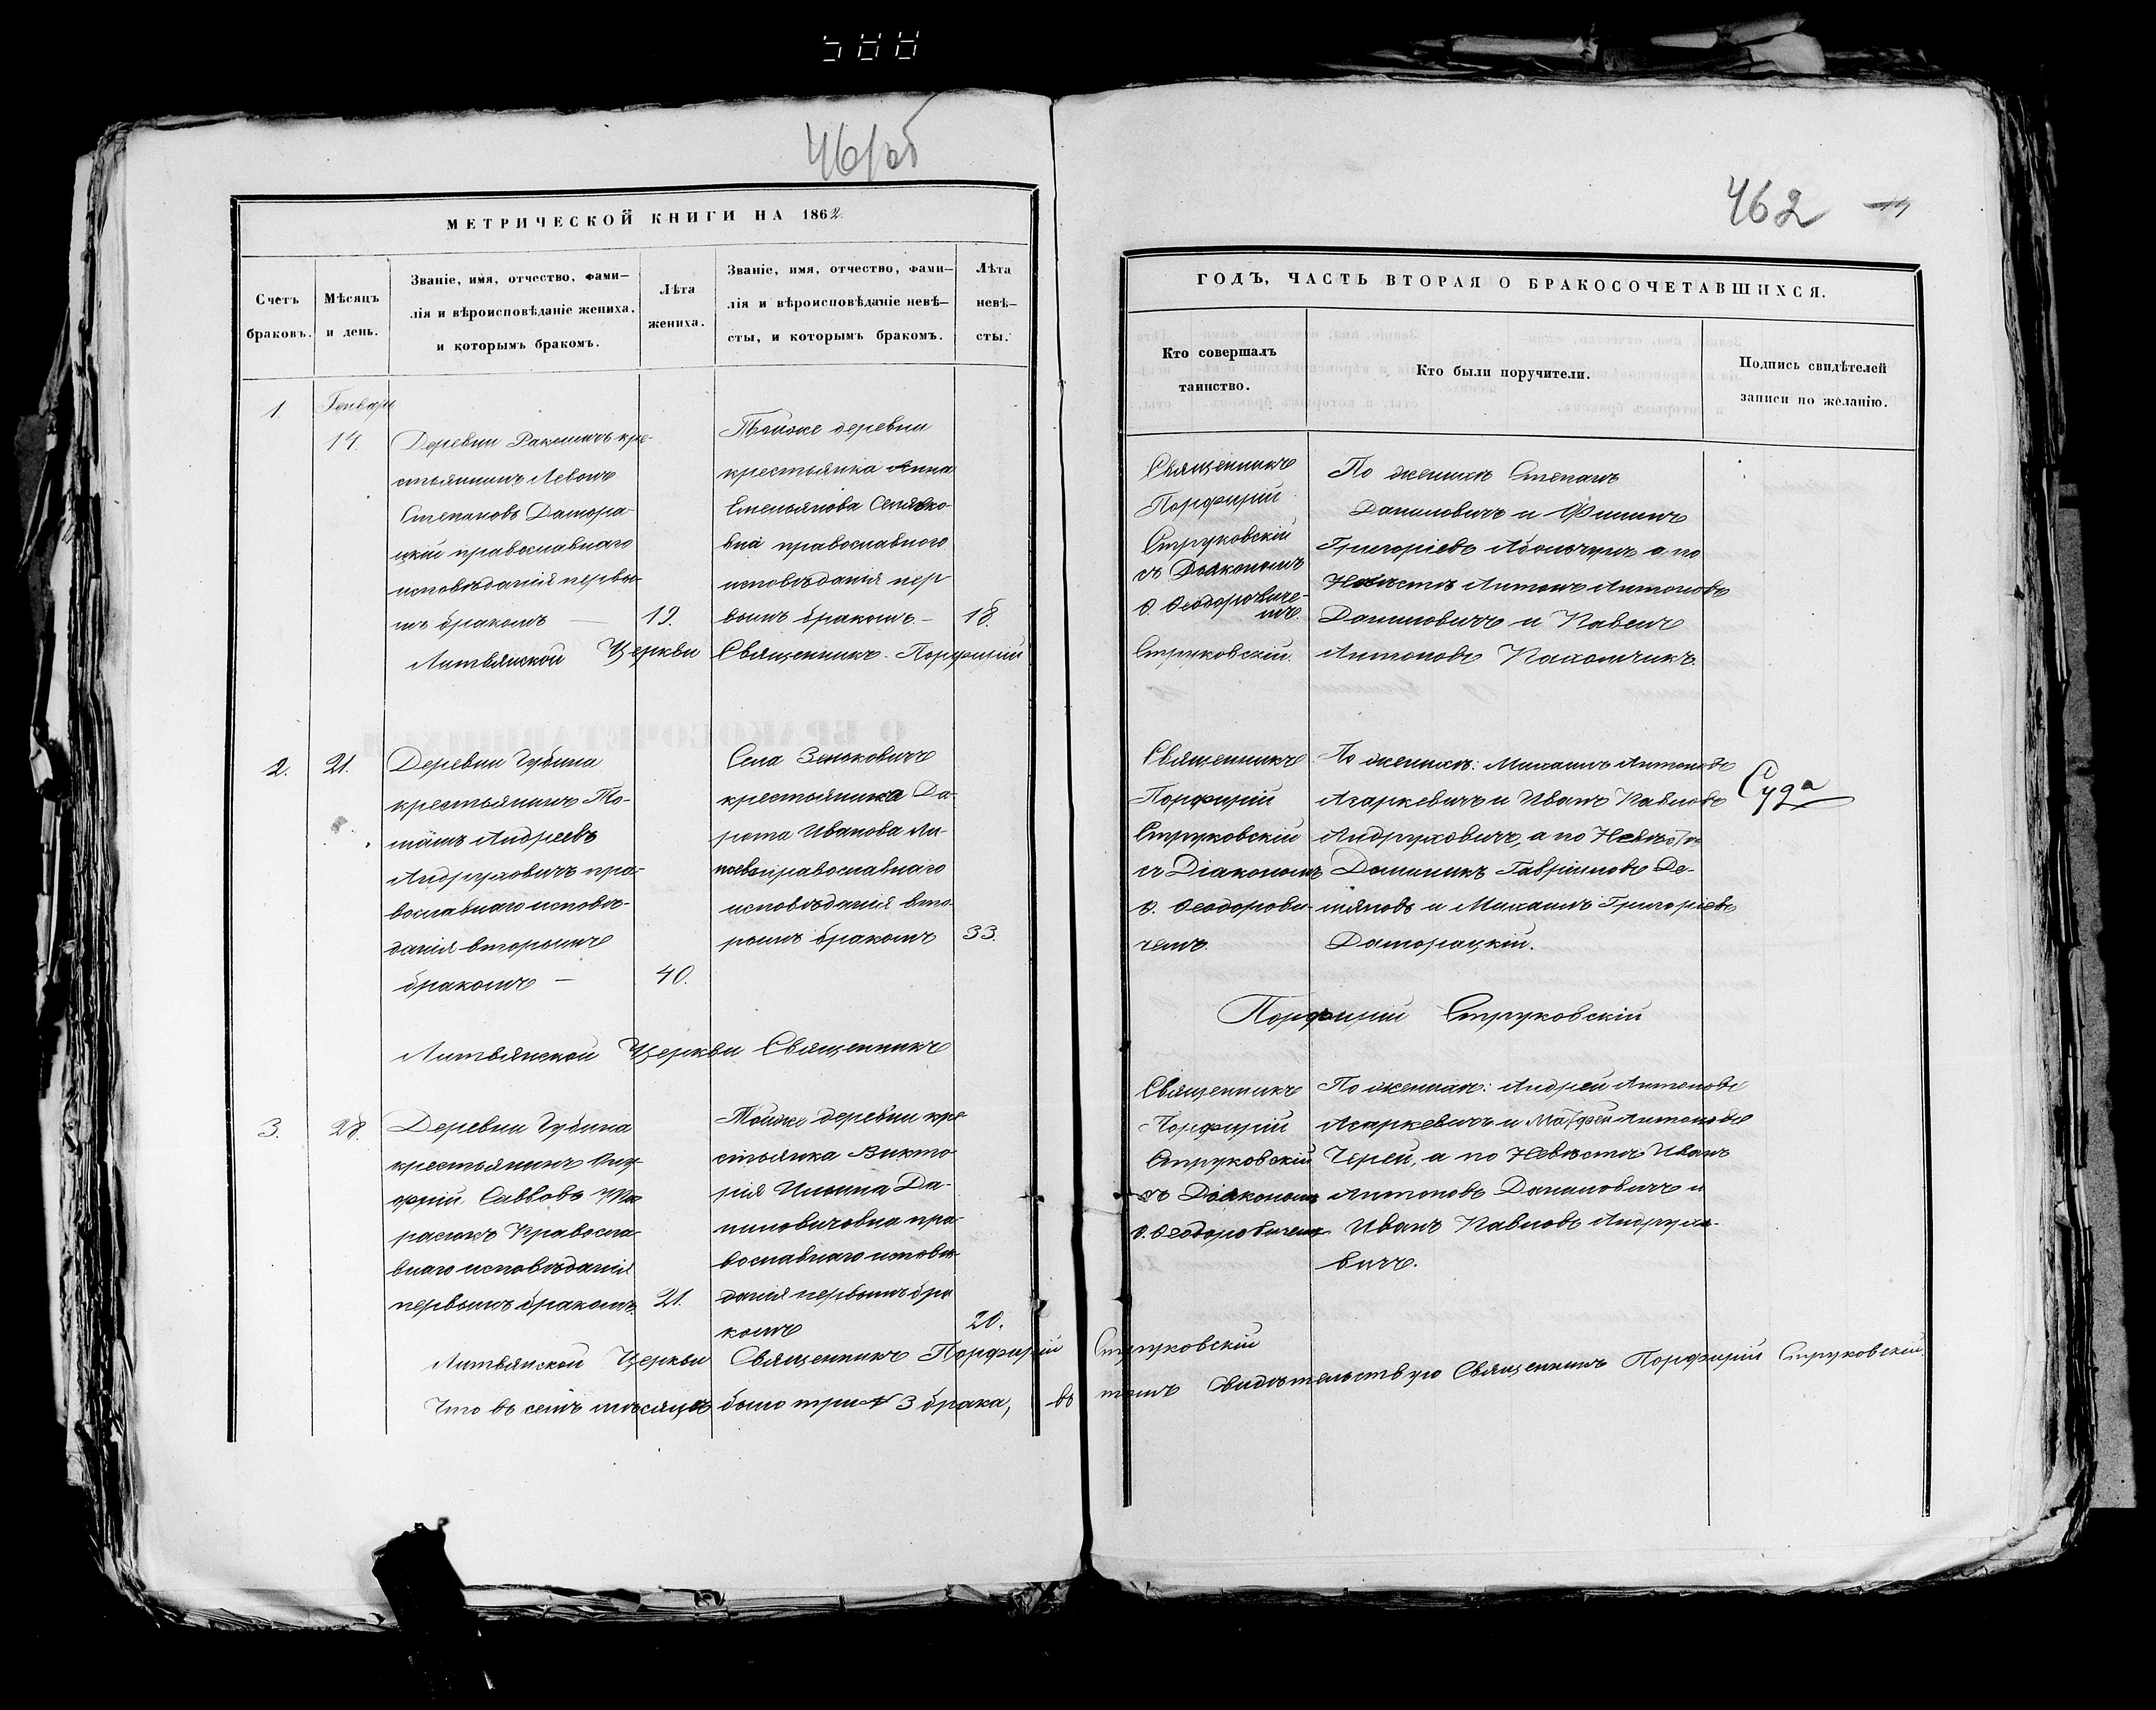 461об
МЕТРИЧЕСКОЙ КНИГИ НА 1862.
Счетъ
браковъ.
Мѣсяцъ
и день.
Званіе, имя, отчество, фами-
лія и вѣроисповѣданіе жениха,
и которымъ бракомъ.
Лѣта
жениха.
Званіе, имя, отчество, фами-
лія и вѣроисповѣданіе невѣ-
сты, и которымъ бракомъ.
Лѣта
невѣ-
сты.
1.
Генваря
14.
Деревни кре-
стьянинъ Левонъ
Степановъ Дамора-
цкій православнаго
исповѣданія первы-
мъ бракомъ —
19.
Тойже деревни
крестьянка Анна
Емельянова
вна православного
исповѣданія пер
вымъ бракомъ —
18.
Литвянской Церкви Священникъ Порфирій
2.
21.
Деревни Губина
крестьянинъ То-
машъ Андреевъ
Андруховичъ пра-
вославнаго исповѣ-
данія вторымъ
бракомъ —
40.
Села Зеньковичъ
крестьянка Да-
рота Иванова
православнаго
исповѣданія вто-
рымъ бракомъ
33.
Литвянской Церкви Священникъ
3.
28.
Деревни Губина
крестьянинъ Ону-
фрій Саввовъ
Правосла-
внаго исповѣданія
первымъ бракомъ.
21.
Тойже деревни кре
стьянка Викто
рія Ильина Да-
ниловичовна пра-
вославнаго исповѣ-
данія первымъ бра
комъ
20.
Литвянской Церкви Священникъ Порфирій
Что въ семъ мѣсяцѣ было три 3 брака, въ
462
ГОДЪ, ЧАСТЬ ВТОРАЯ О БРАКОСОЧЕТАВШИХСЯ.
Кто совершалъ
таинство.
Кто были поручители.
Подпись свидѣтелей
записи по желанію.
Священникъ
Порфирій
Струковскій
съ Діакономъ
Ѳ. Ѳеодоровиче-
мъ.
Струковскій.
По женихѣ Степанъ
Даниловичъ и Филипъ
Григоріевъ а по
Невѣстѣ Антонъ Антоновъ
Даниловичъ и Павелъ
Антоновъ
Священникъ
Порфирій
Струковскій
съ Діакономъ
Ѳ. Ѳеодорови-
чемъ.
По женихѣ: Михаилъ Антоновъ
Азаркевичъ и Иванъ Павловъ
Андруховичъ, а по Невѣстѣ
Доминикъ Гавріиловъ Де-
мяновъ и Михаилъ Григоріевъ
Даморацкій.
Суда
Порфирій Струковскій
Священникъ
Порфирій
Струковскій
съ Діакономъ
Ѳ. Ѳеодоровичемъ
По женихѣ: Андрей Антоновъ
Азаркевичъ и Матфей Антоновъ
Черей, а по Невѣстѣ Иванъ
Антоновъ Даниловичъ и
Иванъ Павловъ Андрухо-
вичъ.
Струковскій
томъ Свидѣтельствую Священникъ Порфирій Струковскій.